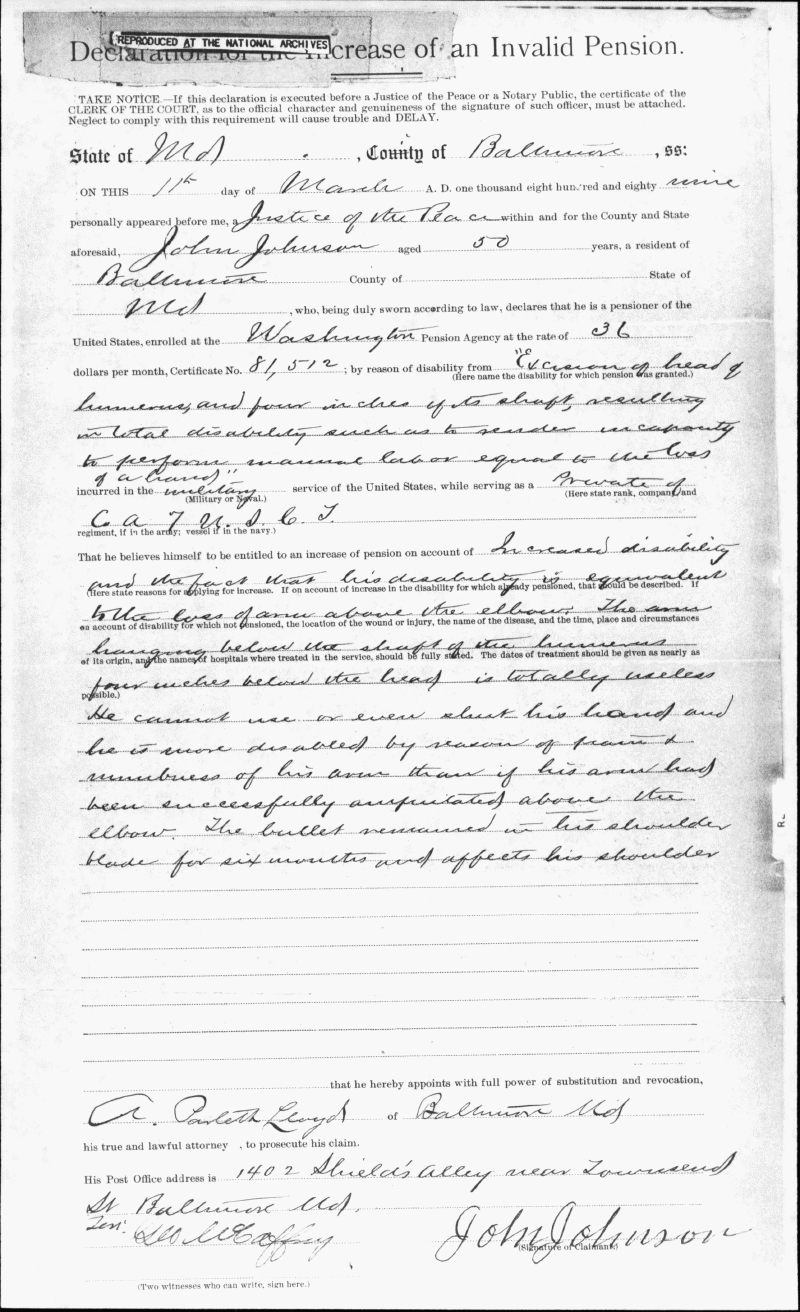 REPRODUCED AT THE NATIONAL ARCHIVES
Declaration for the Increase of an Invalid Pension.
TAKE NOTICE.—If this declaration is executed before a Justice of the Peace or a Notary Public, the certificate of the
CLERK OF THE COURT, as to the official character and genuineness of the signature of such officer, must be attached.
Neglect to comply with this requirement will cause trouble and DELAY.
State of Md. , County of Baltimore , ss:
ON THIS 11th day of March A. D. one thousand eight hundred and eighty nine
personally appeared before me, a Justice of the Peace within and for the County and State
aforesaid, John Johnson aged 50 years, a resident of
Baltimore County of State of
Md , who, being duly sworn according to law, declares that he is a pensioner of the
United States, enrolled at the Washington Pension Agency at the rate of 36
dollars per month, Certificate No. 81,512 ; by reason of disability from "Excision of head of
(Here name the disability for which pension was granted.)
humerus, and four inches of its shaft, resulting
in total disability such as to render incapacity
to perform manual labor equal to the loss
of a hand"
incurred in the military service of the United States, while serving as a Private of
(Military or Naval.) (Here state rank, company and
Co A 7 U. S. C. T.
regiment, if in the army; vessel if in the navy.)
That he believes himself to be entitled to an increase of pension on account of Increased disability
and the fact that his disability is equivalent
(Here state reasons for applying for increase. If on account of increase in the disability for which already pensioned, that should be described. If
to the loss of arm above the elbow. The arm
on account of disability for which not pensioned, the location of the wound or injury, the name of the disease, and the time, place and circumstances
hanging below the shaft of the humerus
of its origin, and the names of hospitals where treated in the service, should be fully stated. The dates of treatment should be given as nearly as
four inches below the head is totally useless
possible.)
He cannot use or even shut his hand and
he is more disabled by reason of pain &
numbness of his arm than if his arm had
been successfully amputated above the
elbow. The bullet remained in his shoulder
blade for six months and affects his shoulder
that he hereby appoints with full power of substitution and revocation,
A. Parlett Lloyd of Baltimore Md
his true and lawful attorney , to prosecute his claim.
His Post Office address is 1402 Shield's Alley near Townsend
St Baltimore Md.
McCaffrey John Johnson
(Signature of Claimant.)
(Two witnesses who can write, sign here.)